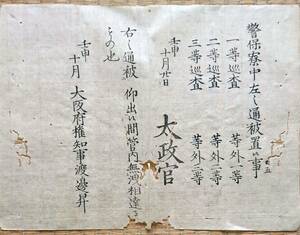 警保寮中左之通被置候事
一等巡査 等外一等
二等巡査 等外二等
三等巡査 等外三等
壬申
十月廿日
太政官
右之通被 仰出候間管内無洩相達する
もの也
壬申
十月 大阪府権知事渡邊昇